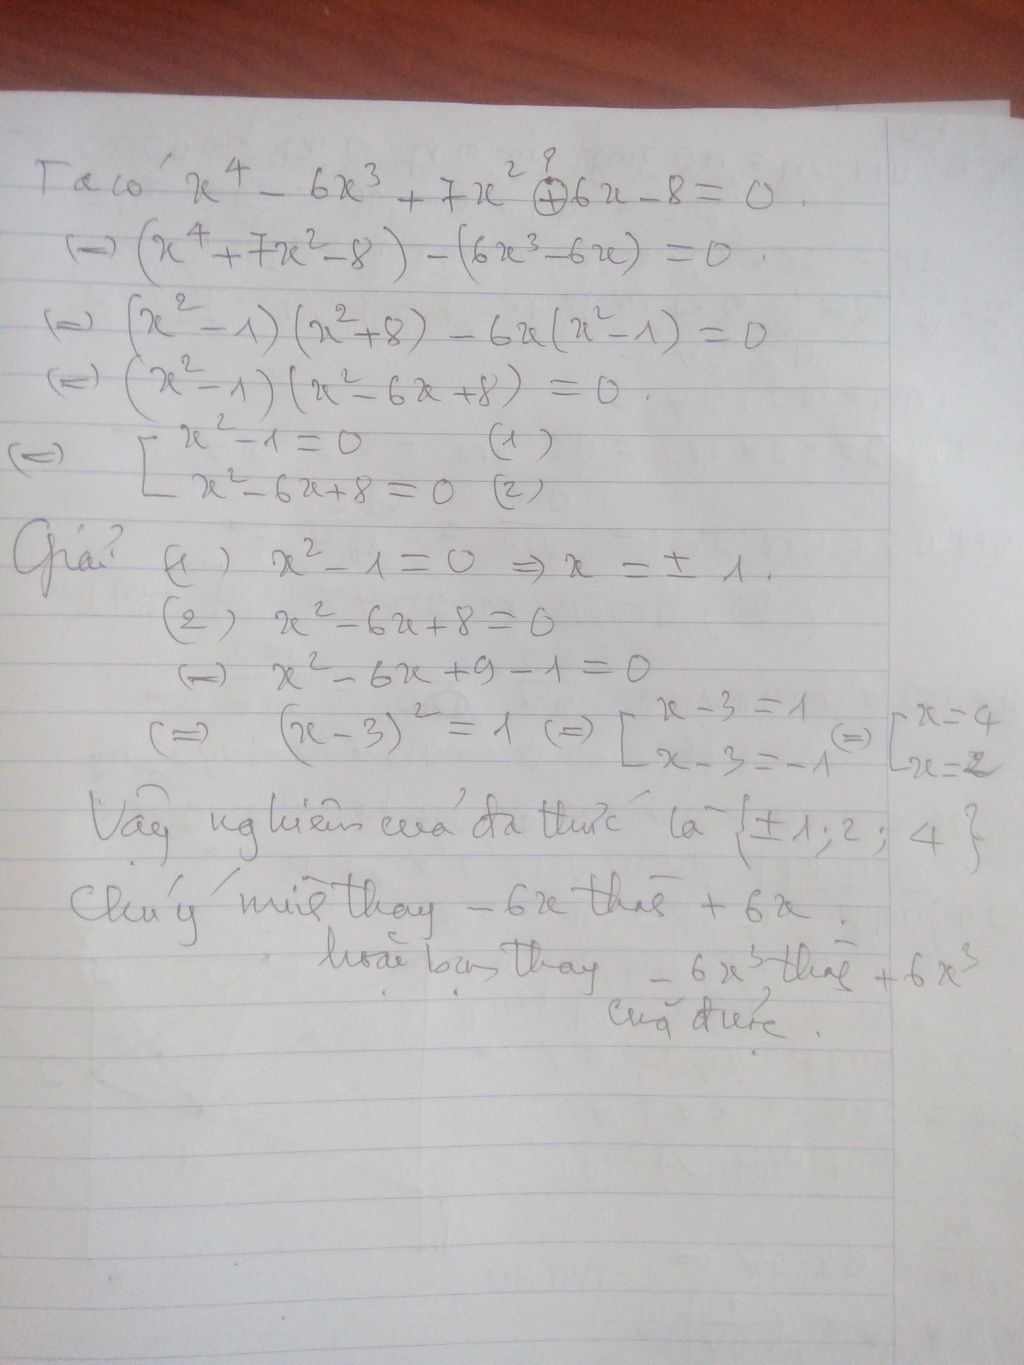 Ta có x⁴ - 6x³ + 7x² ⊕ 6x - 8 = 0.
?
(=) (x⁴ + 7x² - 8) - (6x³ - 6x) = 0.
(=) (x² - 1)(x² + 8) - 6x(x² - 1) = 0
(=) (x² - 1)(x² - 6x + 8) = 0.
(=) [ x² - 1 = 0 (1)
x² - 6x + 8 = 0 (2)
Giải (1) x² - 1 = 0 => x = ± 1.
(2) x² - 6x + 8 = 0
(=) x² - 6x + 9 - 1 = 0
(=) (x - 3)² = 1 (=) [ x - 3 = 1 (=) [ x = 4
x - 3 = -1 x = 2
Vậy nghiệm của đa thức là {±1; 2; 4}
Chú ý mình thay - 6x thành + 6x.
hoặc bạn thay - 6x³ thành + 6x³
cũng được.